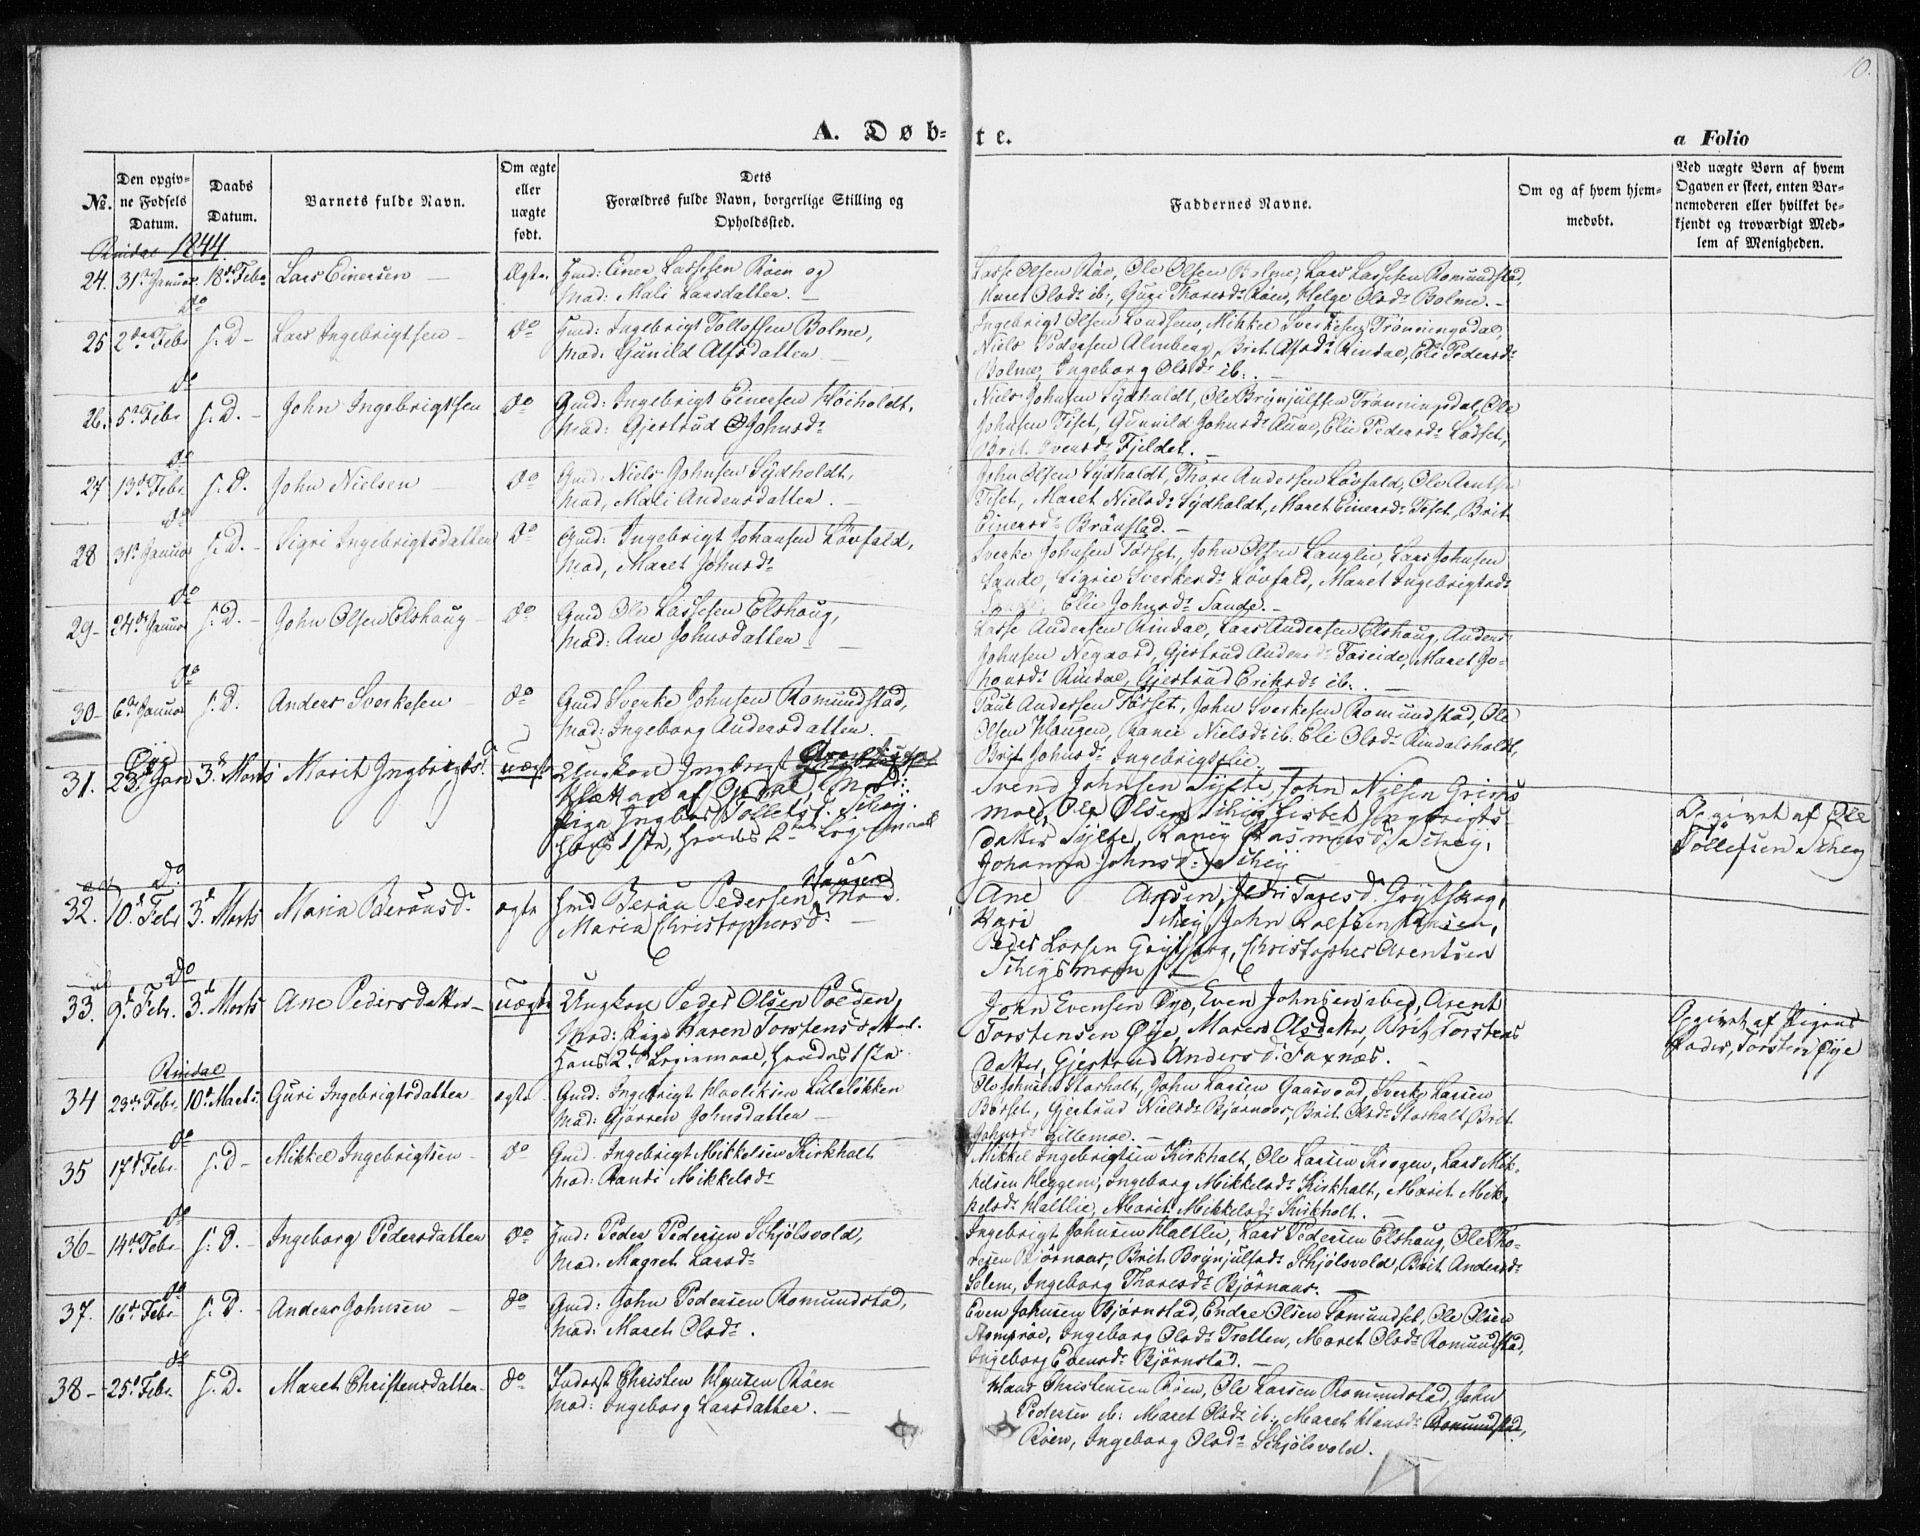 10.
A. Døb-
te.
a Folio
No.
Den opgiv-
ne Fødsels
Datum.
Daabs
Datum.
Barnets fulde Navn.
Om ægte
eller
uægte
født.
Dets
Forældres fulde Navn, borgerlige Stilling og
Opholdssted.
Faddernes Navne.
Om og af hvem hjem-
medøbt.
Ved uægte Børn af hvem
Opgaven er skeet, enten Bar-
nemoderen eller hvilket be-
kjendt og troværdigt Med-
lem af Menigheden.
Rindal 1844.
24. 31te Januar 18de Febr. Lars Einersen — Ægte.
Gmd: Einer Lassesen Röen og
Mad: Mali Larsdatter. —
Lasse Olsen Röe, Ole Olsen Bolme, Lars Lassesen Romundstad,
Maret Olsdr ib:, Guri Thoresdr Röen, Helge Olsdr Bolme. —
do
25 2den Febr s. D — Lars Ingebrigtsen — do
Gmd: Ingebrigt Tollofsen Bolme,
Mad: Gunild Alfsdatter. —
Ingebrigt Olsen, Mikkel Sverkesen Trönningsdal,
Niels Pedersen Almberg, Brit Alfsdr Rindal, Eli Pedersdr
Bolme, Ingeborg Olsdr ib: —
do
26. 5te Febr s. D. — John Ingebrigtsen do
Gmd: Ingebrigt Einersen Høiholdt,
Mad: Gjertrud Johnsdr
Niels Johnsen Sydholdt, Ole Brynjulfsen Trønningsdal, Ole
Johnsen Töset, Gunnild Johnsdr Aune, Elie Pedersdr Löset,
Brit Svensdr Fjeldet. —
do
27 13de Febr s. D. John Nielsen — do
Gmd: Niels Johnsen Sydholdt,
Mad, Mali Andersdatter. —
John Olsen Sydholdt, Thore Andersen Lövfald, Ole Arntsen
Töset, Maret Nielsdr Sydholdt, Maret Einersdr Töset, Brit
Einersdr Brönstad. —
do
28 31te Januar s. D. — Sigri Ingebrigtsdatter do
Gmd: Ingebrigt Johansen Lövfald,
Mad, Maret Johnsdr
Sverke Johnsen Törset, John Olsen Langlie, Lars Johnsen
Sande, Sigrie Sverkesdr Lövfald, Maret Ingebrigtsdr
Elie Johnsdr Sande. —
do
29 — 24de Januar s. D. — John Olsen Elshaug — do
Gmd Ole Lassesen Elshaug,
Mad: Ane Johnsdatter —
Lasse Andersen Rindal, Lars Andersen Elshaug, Anders
Johnsen Negaard, Gjertrud Andersdr Foseide, Maret Jo-
honsdr Rindal, Gjertrud Eriksdr ib: —
do
30 — 6te Januar s. D. — Anders Sverkesen — do
Gmd Sverke Johnsen Romundstad,
Mad: Ingeborg Andersdatter. —
Paul Andersen Törset, John Sverkesen Romundstad, Ole
Olsen Haugen, Ranei Nielsdr ib. Eli Olsdr Rindalsholdt,
Brit Johnsdr Ingebrigtslie. —
Øye
31. 23de Jan 3de Marts Marit Ingbrigtsd. uægte
Ungkarl Ingbrigt
af Mod:
Pige Ingbor Tollefsd. Schey.
Hans 1ste, Hendes 2det Leiermaal
Svend Johnsen Sylte, John Nilsen Griss
moe, Ole Olsen Schey, Lisbet Ingbrigts
datter Sylte, Raney Rasmusd. Schey,
Johanna Johnsd: Schey
Opgivet af Ole
Tollefsen Schey
Do.
32. 10de Febr 3de Marts Maria Beraasd. ægte
Gmd Beraa Pedersen Haugen Mod.
Maria Christophersd. —
Ane Aasen, Jedri Taresd. Grytskog,
Kari Schey, John Rolfsen Aasen,
Peder Larsen Grytskog, Christopher Arentsen
Scheysmoen
Do
33. 9de Febr. 3de Marts Ane Pedersdatter — uægte
Ungkarl Peder Olsen Poeden,
Mod: Pige Karen Torstensdatter.
Hans 2det Leiermaal, Hendes 1ste.
John Evensen Øye, Even Johnsen ibed, Arent
Torstensen Øye, Maren Olsdatter, Brit Torstens
datter, Gjertrud Andersd. Foxnæs.
Opgivet af Pigens
Fader, Torsten Øye
Rindal
34 23de Febr. 10de Marts. Guri Ingebrigtsdatter ægte
Gmd. Ingebrigt Havliksen Lilleløkken
Mad: Gjörren Johnsdatter —
Ole Johnsen Storholt, John Larsen Gaasvad, Sverke Larsen
Börset, Gjertrud Nielsdr Bjørnaas, Brit Olsdr Storholt, Brit
Johnsdr Lillemoe. —
do
35 17de Febr. s. D — Mikkel Ingebrigtsen — do
Gmd. Ingebrigt Mikkelsen Kirkholt
Mad: Randi Mikkelsdr
Mikkel Ingebrigtsen Kirkholt, Ole Larsen Krogen, Lars Mik-
kelsen Heggem, Ingeborg Mikkelsdr Kirkholt, Marit Mik-
kelsdr Haltlie, Marit Mikkelsdr Kirkholt. —
do
36 — 14de Febr s. D. — Ingeborg Pedersdatter do
Gmd: Peder Pedersen Schjølsvold,
Mad. Magret Larsdr
Ingebrigt Johnsen Haltlie, Lars Pedersen Elshaug, Ole Tho-
resen Bjørnaas, Brit Brynjulfsdr Schjølsvold, Brit Andersdr
Solem, Ingeborg Thoresdr Bjørnaas. —
do
37. 16de Febr s. D. Anders Johnsen — do
Gmd: John Pedersen Romundstad,
Mad: Maret Olsdr.
Even Johnsen Bjørnstad, Endre Olsen Romundset, Ole Olsen
Romsröe, Ingeborg Olsdr Tretten, Maret Olsdr Romundstad,
Ingeborg Evensdr Bjørnstad. —
do
38 — 25de Febr. s. D. — Maret Christensdatter — do
Inderst Christen Hansen Röen
Mad: Ingeborg Larsdatter. —
Hans Christensen Röen, Ole Larsen Romundstad, John
Pedersen ib: Maret Olsdr ib: Maret Hansdr Romundstad,
Röen, Ingeborg Olsdr Schjølsvold.